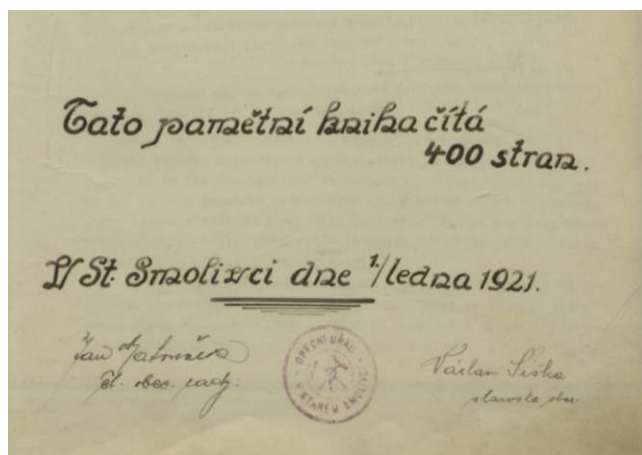 Tato pamětní kniha čítá
400 stran.
V St. Smolivci dne 1./ledna 1921.
Jan
čl. obec. rady.
OBECNÍ ÚŘAD
V STARÉM SMOLIVCI
Václav Šiška
starosta obce.